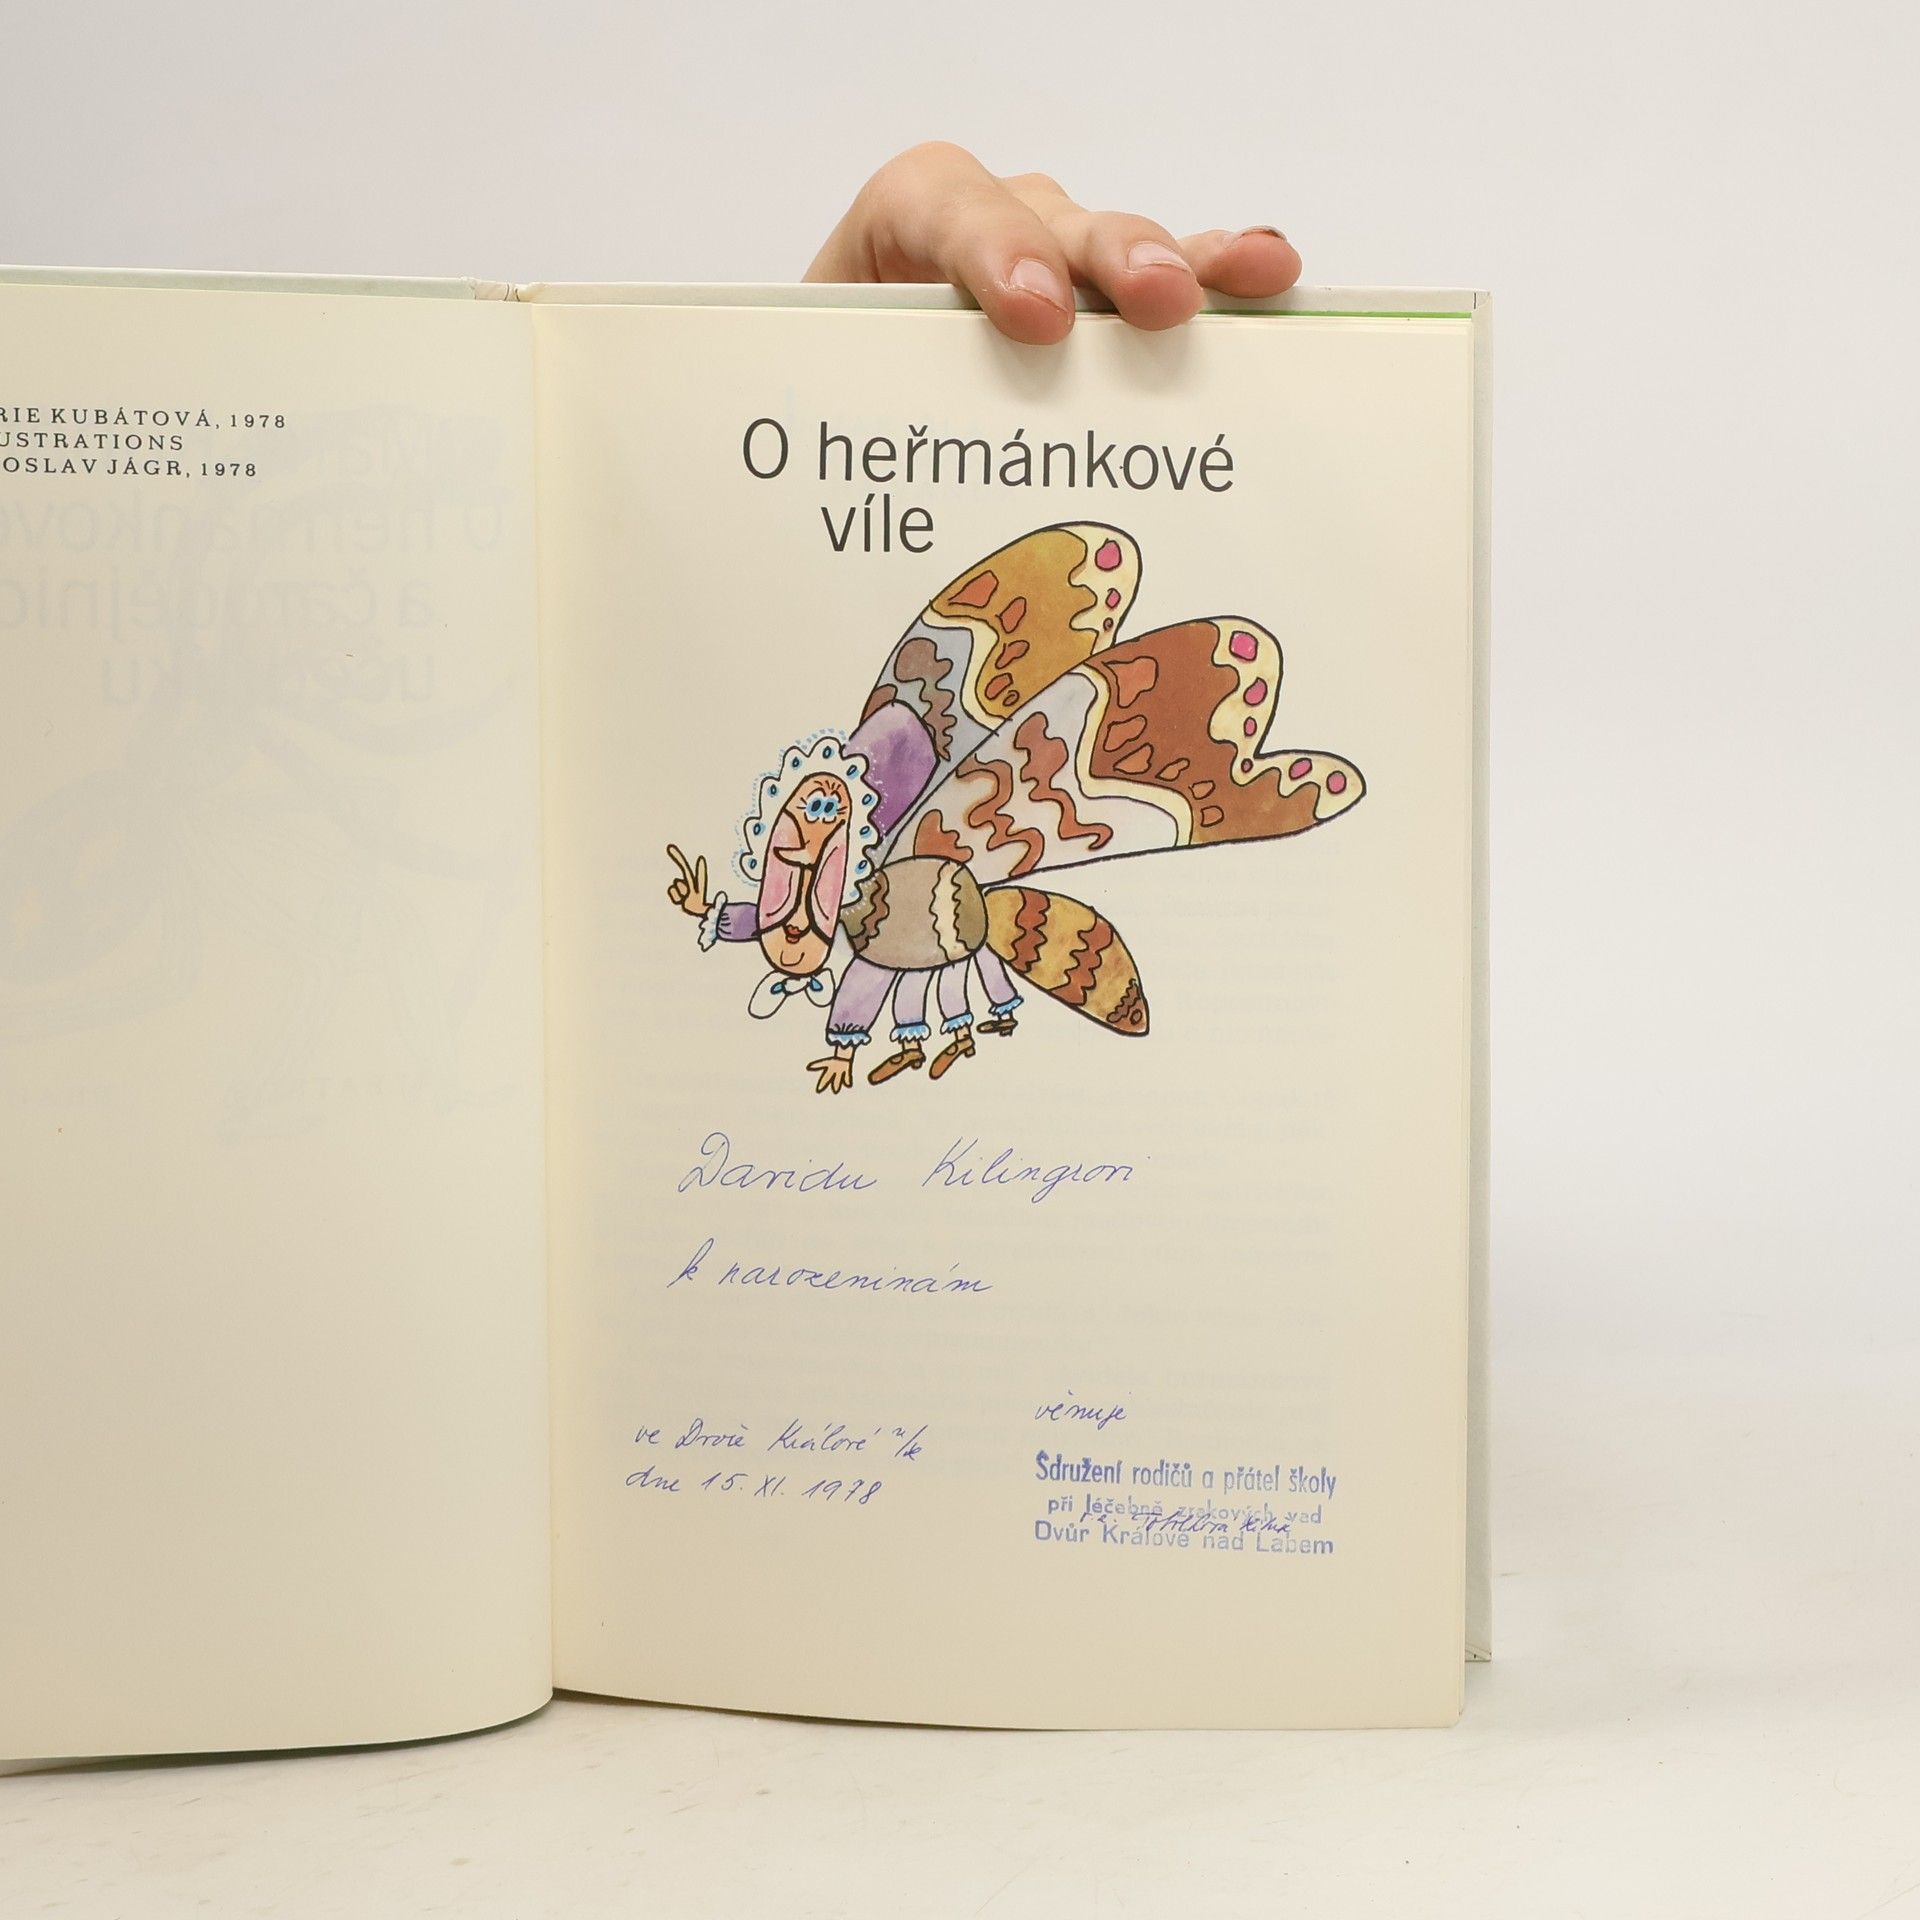 RIE KUBÁTOVÁ, 1978
USTRATIONS
OSLAV JÁGR, 1978
O heřmánkové
víle
Davidu Kilingrovi
k narozeninám
ve Dvoře Králové n/L
dne 15. XI. 1978
věnuje
Sdružení rodičů a přátel školy
při léčebně zrakových vad
Dvůr Králové nad Labem